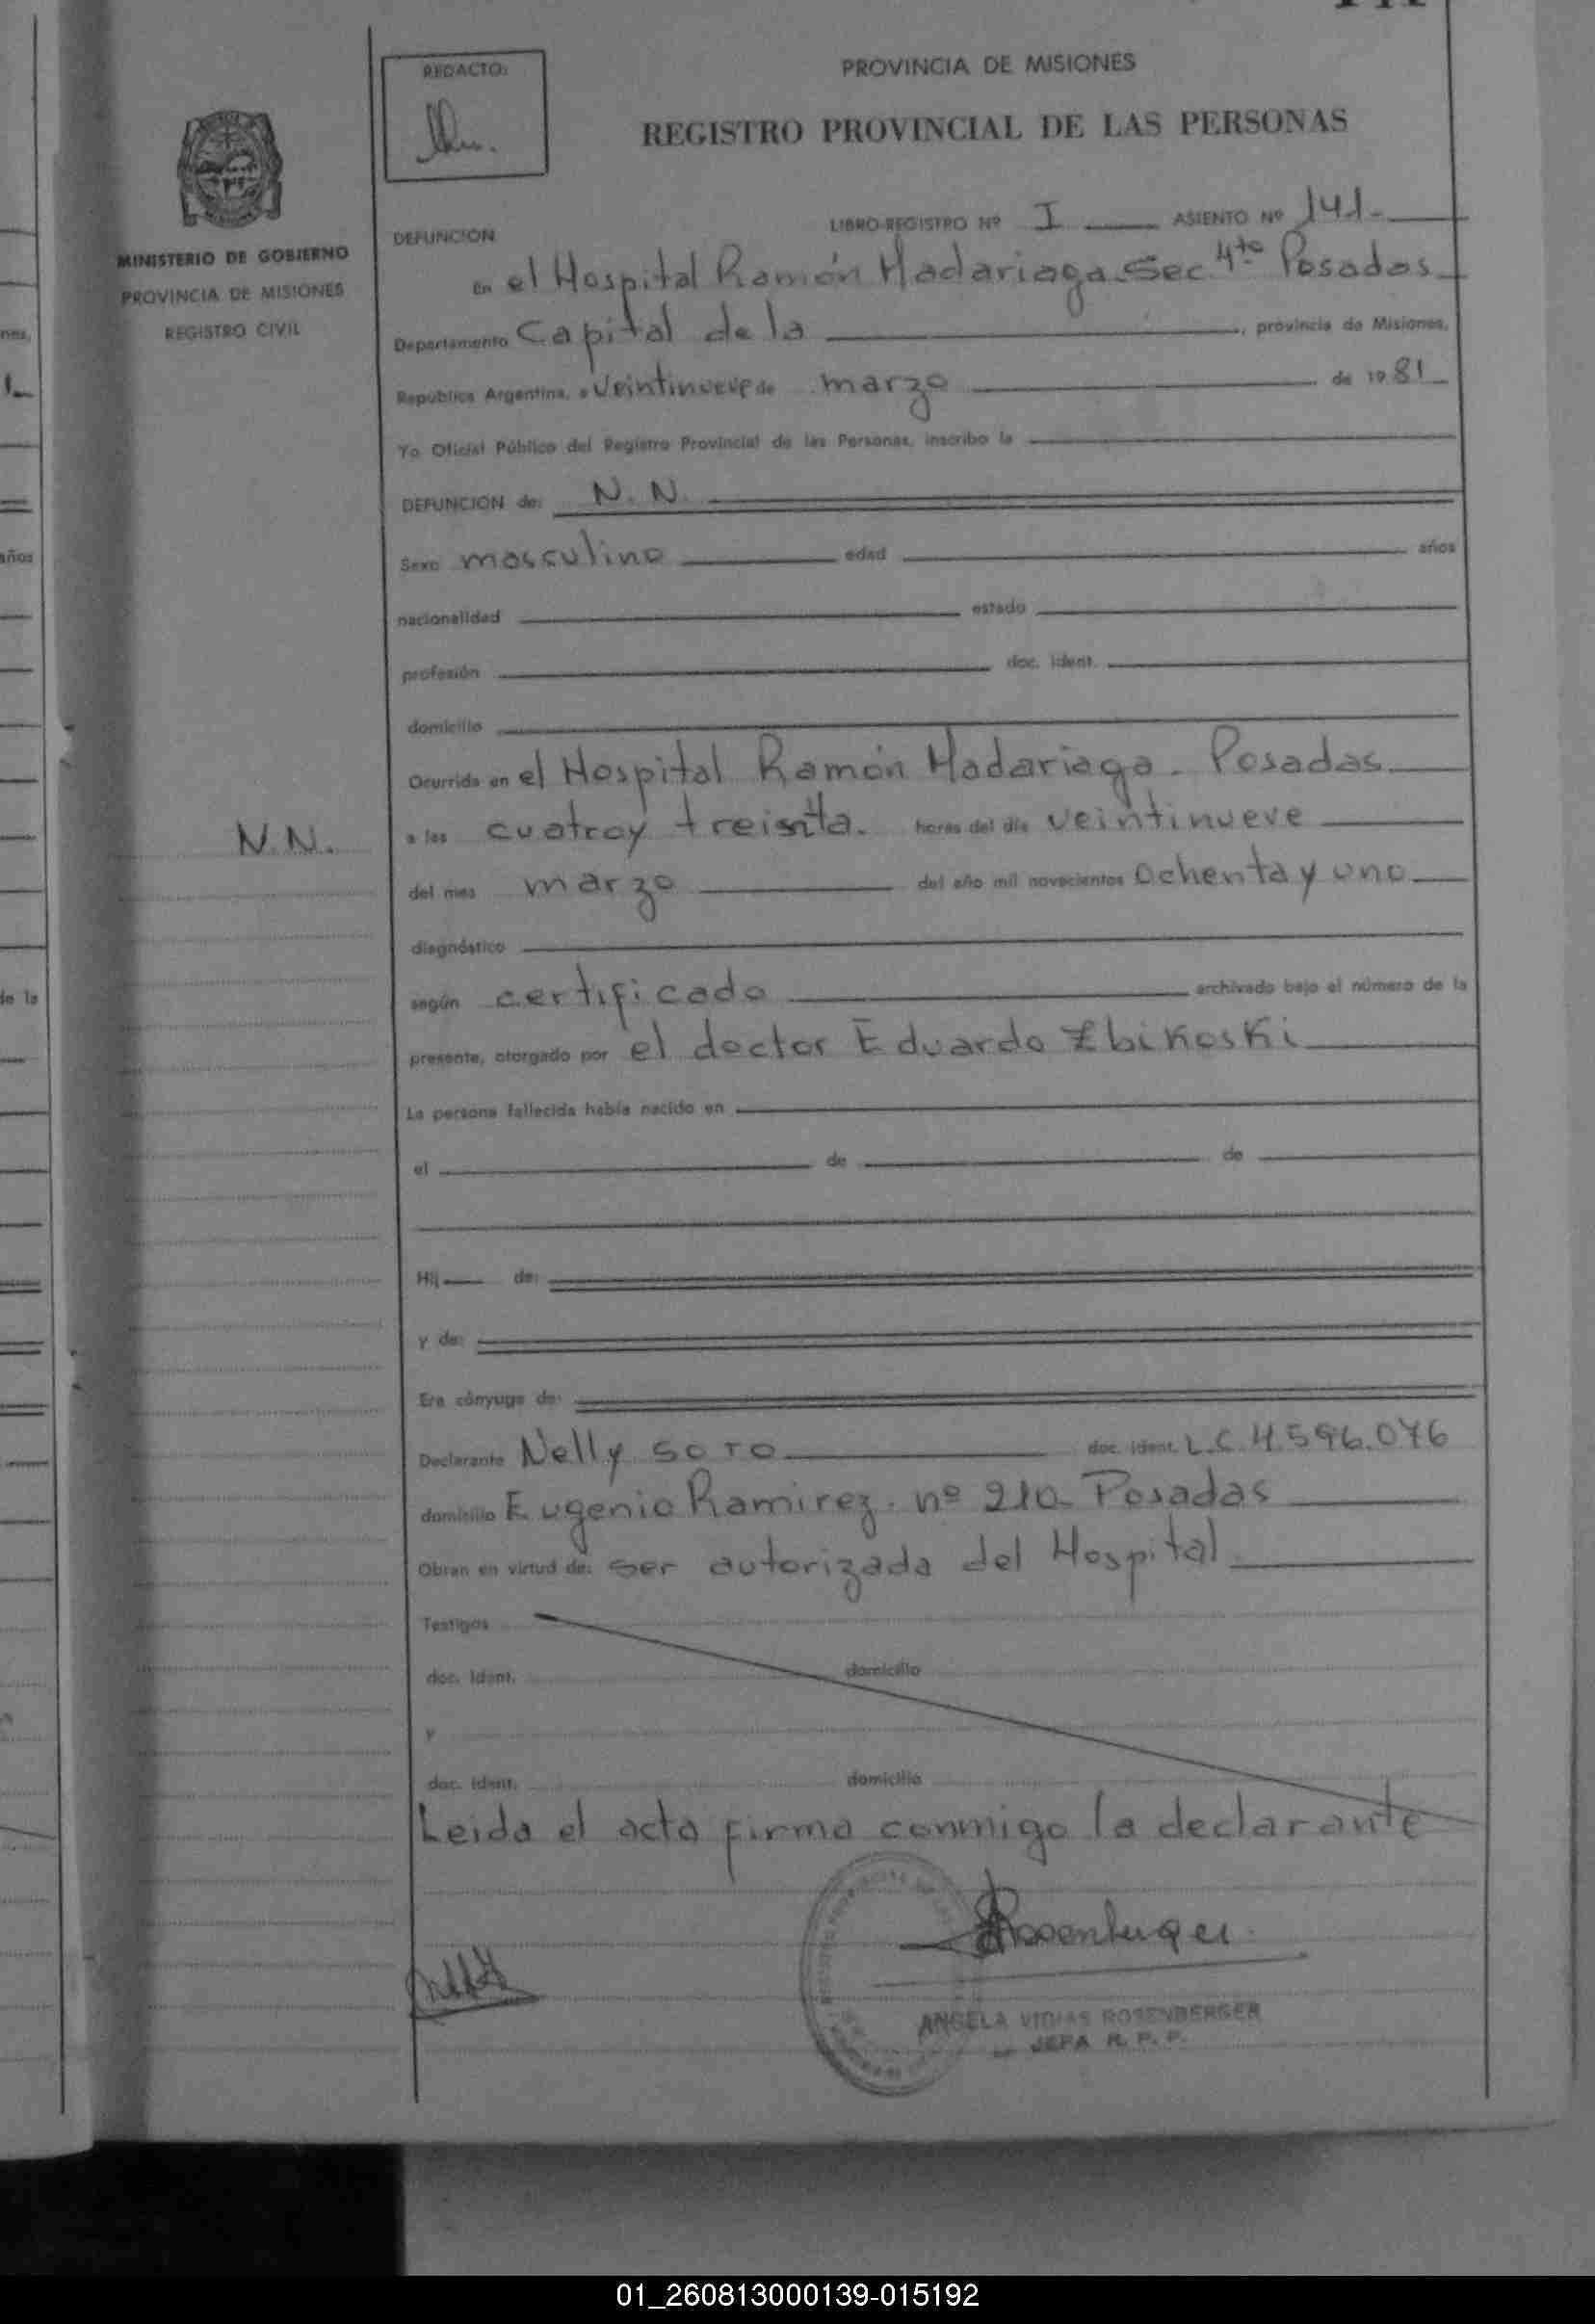 REDACTO:
PROVINCIA DE MISIONES
REGISTRO PROVINCIAL DE LAS PERSONAS
MINISTERIO DE GOBIERNO
PROVINCIA DE MISIONES
REGISTRO CIVIL
LIBRO-REGISTRO Nº I ASIENTO Nº 141.-
DEFUNCION
En el Hospital Ramón Madariaga Sec. 4ta Posadas
Departamento Capital de la , provincia de Misiones,
República Argentina, a Veintinueve de marzo de 19 81
Yo Oficial Público del Registro Provincial de las Personas, inscribo la
DEFUNCION de: N. N.
Sexo masculino edad años
nacionalidad estado
profesión doc. ident.
domicilio
Ocurrida en el Hospital Ramón Madariaga - Posadas
N.N.
a las cuatro y treinta. horas del día veintinueve
del mes marzo del año mil novecientos ochenta y uno
diagnóstico
según certificado archivado bajo el número de la
presente, otorgado por el doctor Eduardo Zbikoski
La persona fallecida había nacido en
el de de
Hij de:
y de:
Era cónyuge de:
Declarante Nelly SOTO doc. ident. L.C. 4.596.076
domicilio Eugenio Ramirez. nº 210- Posadas
Obran en virtud de: ser autorizada del Hospital
Testigos
doc. ident. domicilio
y
doc. ident. domicilio
Leida el acta firma conmigo la declarante
ANGELA ROSENBERGER
JEFA R. P. P.
01_260813000139-015192